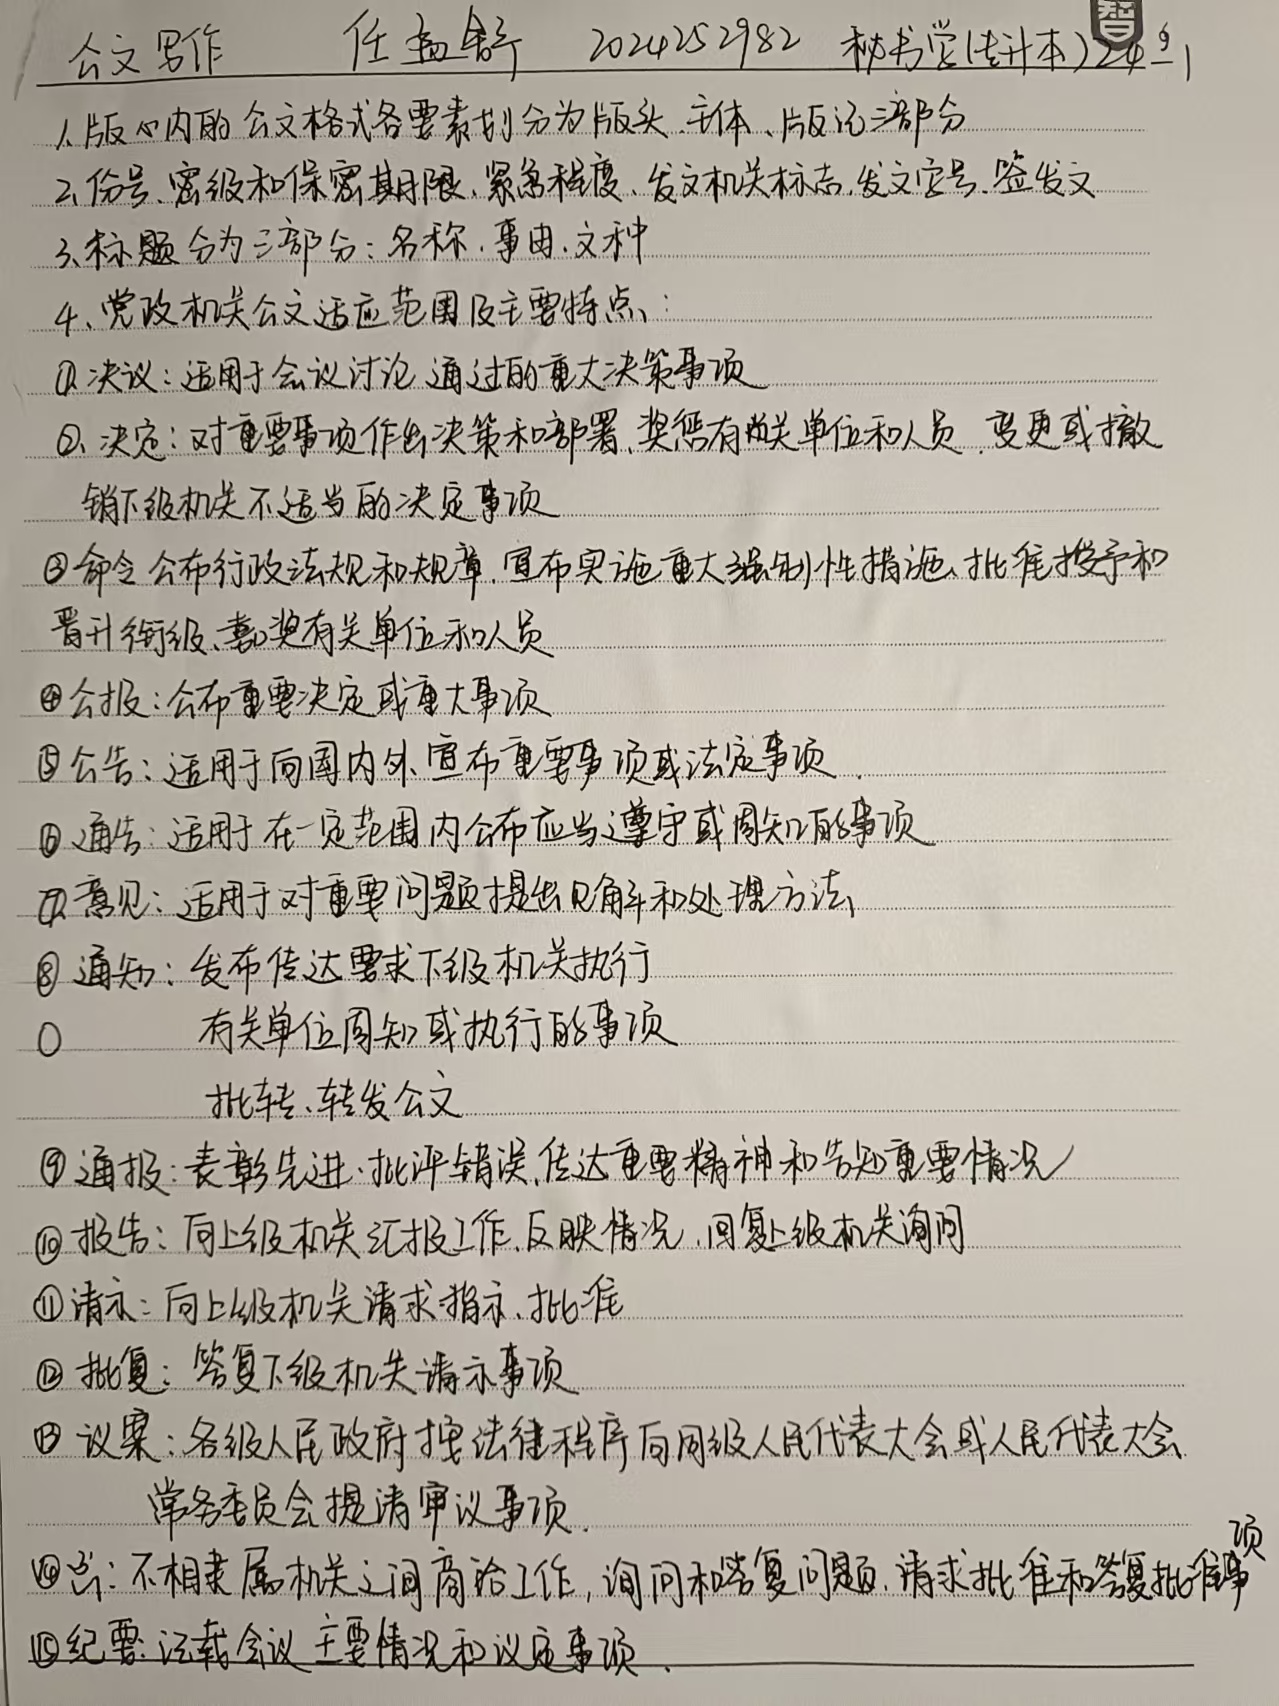 智
公文写作 任孟舒 2024252982 秘书学(专升本)24-1
1、版心内的公文格式各要素划分为版头、主体、版记三部分
2、份号、密级和保密期限、紧急程度、发文机关标志、发文字号、签发文
3、标题分为三部分：名称、事由、文种
4、党政机关公文适应范围及主要特点：
①决议：适用于会议讨论通过的重大决策事项
②、决定：对重要事项作出决策和部署、奖惩有关单位和人员、变更或撤
销下级机关不适当的决定事项
③命令 公布行政法规和规章、宣布实施重大强制性措施、批准授予和
晋升衔级、嘉奖有关单位和人员
④公报：公布重要决定或重大事项
⑤公告：适用于向国内外宣布重要事项或法定事项
⑥通告：适用于在一定范围内公布应当遵守或周知的事项
⑦意见：适用于对重要问题提出见解和处理方法、
⑧通知：发布传达要求下级机关执行
有关单位周知或执行的事项
批转、转发公文
⑨通报：表彰先进、批评错误、传达重要精神和告知重要情况
⑩报告：向上级机关汇报工作、反映情况、回复上级机关询问
⑪请示：向上级机关请求指示、批准
⑫批复：答复下级机关请示事项
⑬议案：各级人民政府按法律程序向同级人民代表大会或人民代表大会
常务委员会提请审议事项.
⑭函：不相隶属机关之间商洽工作，询问和答复问题、请求批准和答复批准事项
⑮纪要：记载会议主要情况和议定事项.